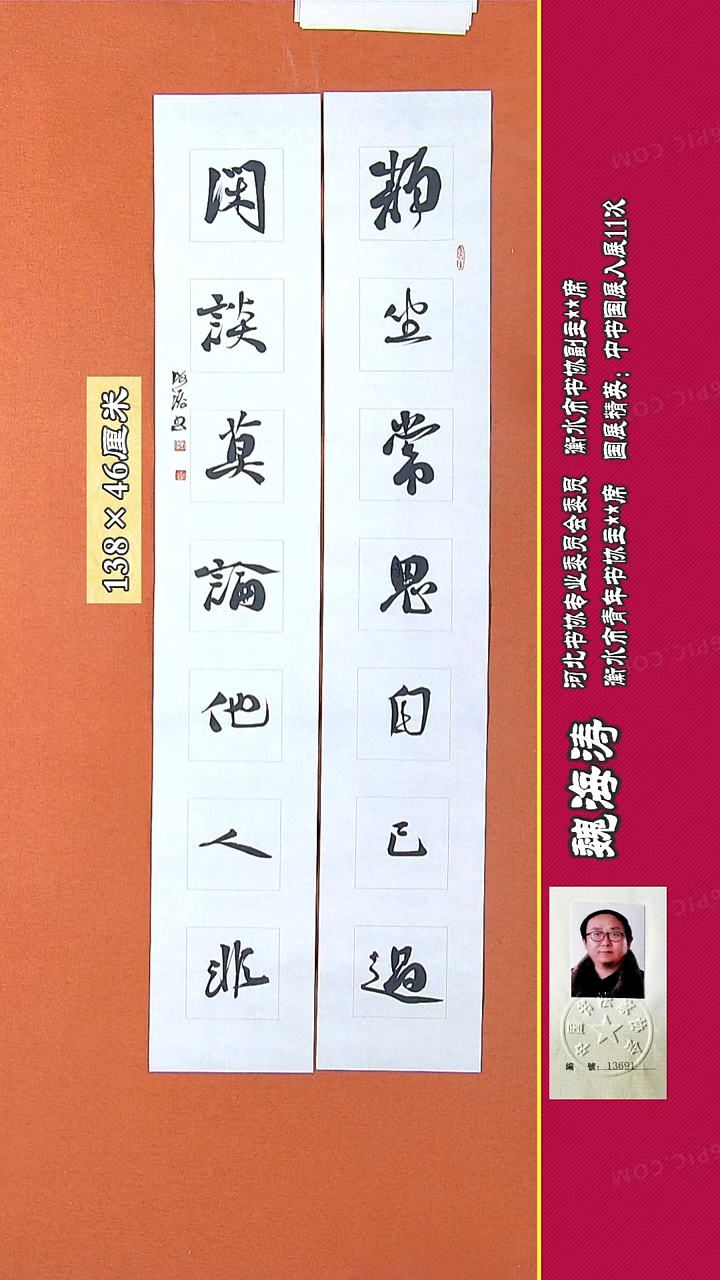 靜坐常思自己過
閑談莫論他人非
海濤書
138×46厘米
魏海涛
河北书协专业委员会委员 衡水市书协副主**席
衡水市青年书协主**席 国展精英：中书国展入展11次
編號：13691